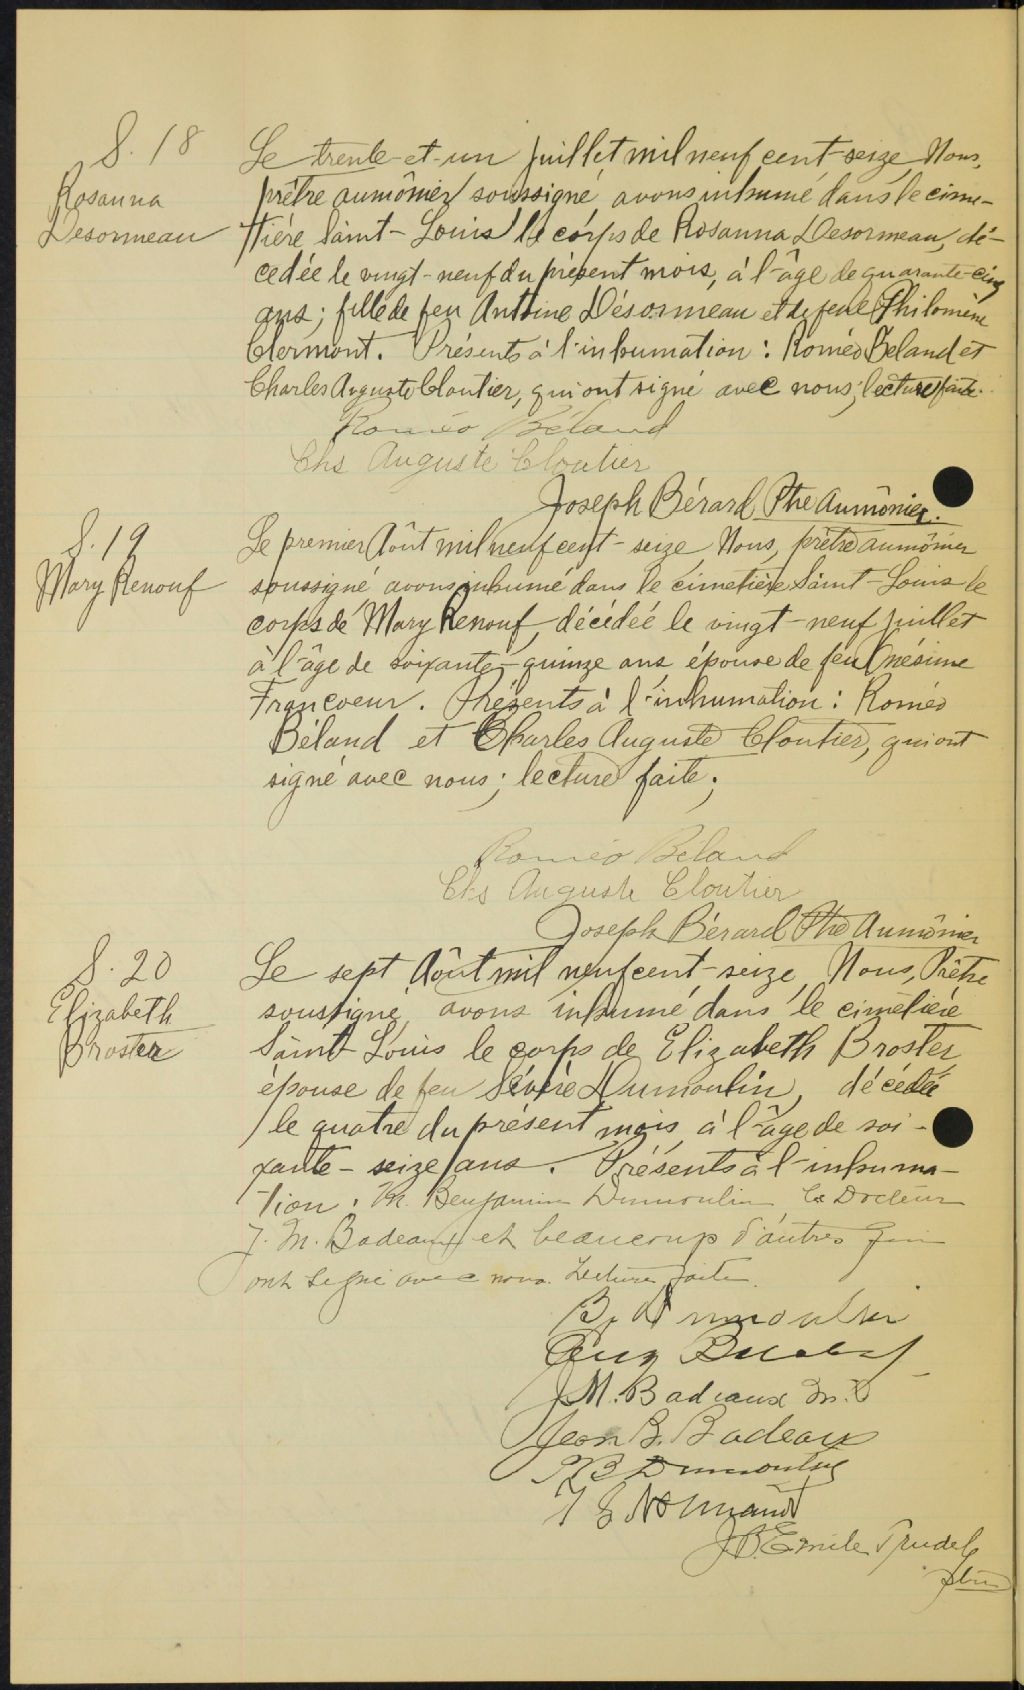 S. 18
Rosanna
Desormeau
Le trente-et-un juillet mil neuf cent-seize, Nous,
prêtre aumônier soussigné avons inhumé dans le cime-
tière Saint-Louis le corps de Rosanna Desormeau, dé-
cedée le vingt-neuf du présent mois, à l'âge de quarante-cinq
ans; fille de feu Antoine Désormeau et de feue Philomène
Clermont. Présents à l'inhumation: Roméo Béland et
Charles Auguste Cloutier, qui ont signé avec nous; lecture faite.
Roméo Béland
Chs Auguste Cloutier
Joseph Bérard Ptre Aumônier.
S. 19
Mary Renouf
Le premier Aôut mil neuf cent-seize Nous, prêtre aumônier
soussigné avons inhumé dans le cimetière Saint-Louis le
corps de Mary Renouf, décédée le vingt-neuf juillet
à l'âge de soixante-quinze ans, épouse de feu Onésime
Francoeur. Présents à l'inhumation: Roméo
Béland et Charles Auguste Cloutier, qui ont
signé avec nous; lecture faite;
Roméo Béland
Chs Auguste Cloutier
Joseph Bérard Ptre Aumônier
S. 20
Elizabeth
Broster
Le sept Aôut mil neuf cent-seize, Nous, Prêtre
soussigné, avons inhumé dans le cimetière
Saint Louis le corps de Elizabeth Broster,
épouse de feu Sévère Dumoulin, décédée
le quatre du présent mois, à l'âge de soi-
xante-seize ans. Présents à l'inhuma-
tion: M. Benjamin Dumoulin, le Docteur
J. M. Badeaux et beaucoup d'autres qui
ont signé avec nous. Lecture faite.
B. Dumoulin
J M. Badeaux M.D
Jean B. Badeaux
P B Dumoulin
Normand
J.B. Emile Trudel
ptre